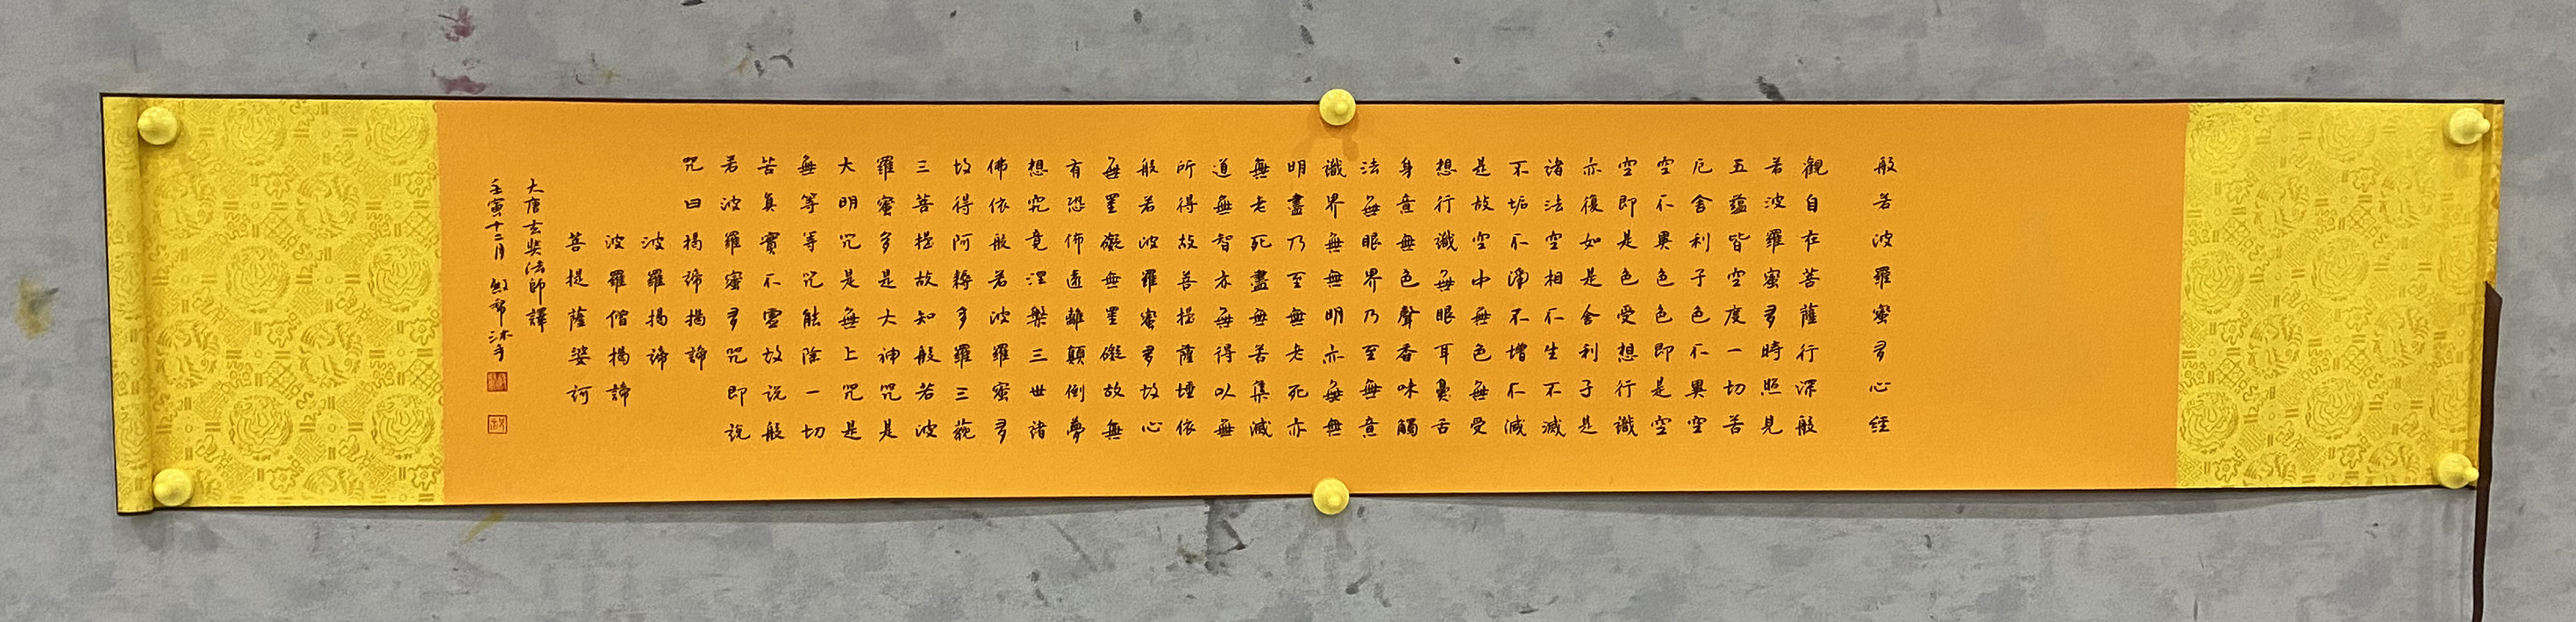 般若波羅蜜多心經
觀自在菩薩行深般
若波羅蜜多時照見
五蘊皆空度一切苦
厄舍利子色不異空
空不異色色即是空
空即是色受想行識
亦復如是舍利子是
諸法空相不生不滅
不垢不淨不增不減
是故空中無色無受
想行識無眼耳鼻舌
身意無色聲香味觸
法無眼界乃至無意
識界無無明亦無無
明盡乃至無老死亦
無老死盡無苦集滅
道無智亦無得以無
所得故菩提薩埵依
般若波羅蜜多故心
無罣礙無罣礙故無
有恐怖遠離顛倒夢
想究竟涅槃三世諸
佛依般若波羅蜜多
故得阿耨多羅三藐
三菩提故知般若波
羅蜜多是大神咒是
大明咒是無上咒是
無等等咒能除一切
苦真實不虛故說般
若波羅蜜多咒即說
咒曰揭諦揭諦
波羅揭諦
波羅僧揭諦
菩提薩婆訶
大唐玄奘法師譯
壬寅十二月 沐手